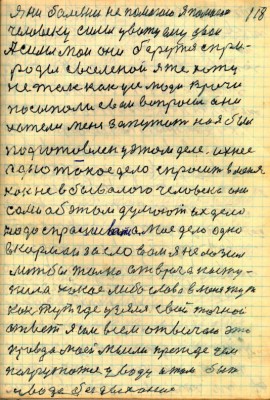 я ни болезни не помогаю я помогаю 118
человеку силы у этому даю
А силы мои они берутся с при-
роды вселеной я не хочу
не так как уче люди врачи
посыпали своим вопросом они
хотели меня запутат но я был
подготовлен у этом деле. их не
одно такое дело спросит в меня
как не в бывалого человека они
сами об этом думают их дело
надо спрашивать а мое дело одно
в карман за словом я не лазил
мне бы только от врача посту-
пила какое либо слова в меня тут
как тут где узялся свой точной
ответ я им всем отвечаю это
правда моей мысли прежде чем
погружатся у воду и там быт
у воде без дыхания